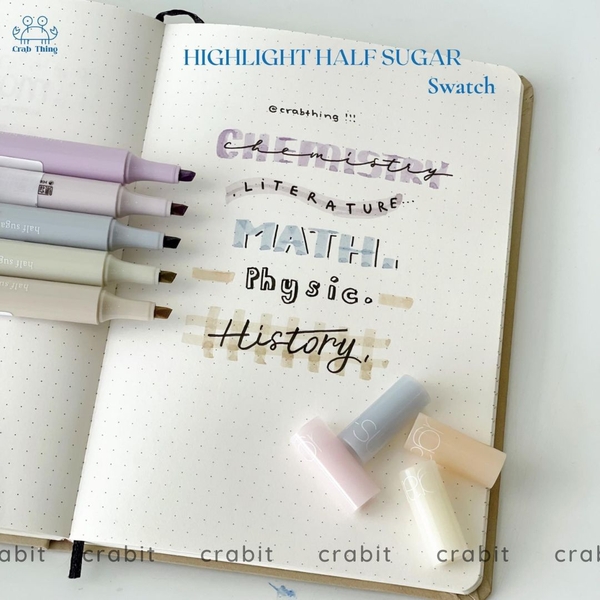 Crab Thing
HIGHLIGHT HALF SUGAR
Swatch
@crabthing !!!
CHEMISTRY
chemistry
.LITERATURE...
MATH.
Physic.
History,
half sugar
half sugar
half sugar
crabit crabit crabit crabit